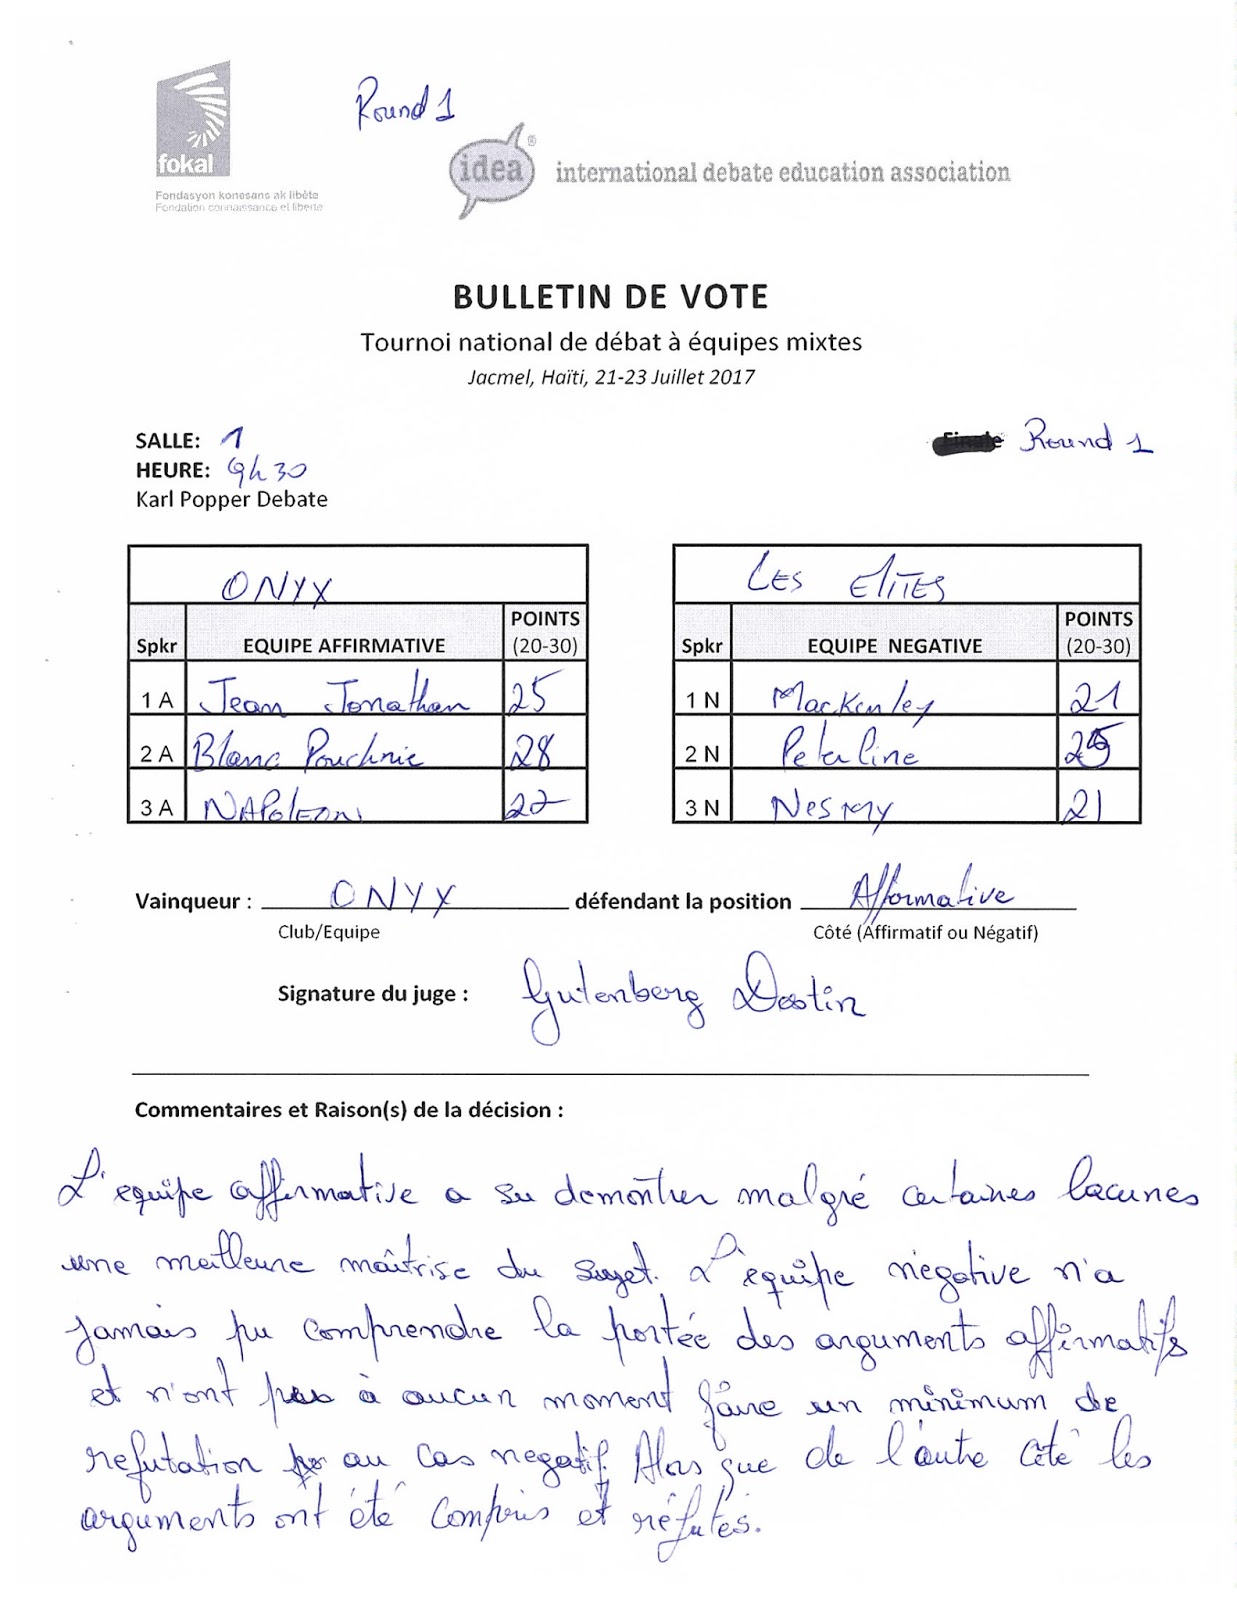 Round 1
fokal
Fondasyon konesans ak libète
Fondation connaissance et liberté
idea® international debate education association
BULLETIN DE VOTE
Tournoi national de débat à équipes mixtes
Jacmel, Haïti, 21-23 Juillet 2017
SALLE: 1
Round 1
HEURE: 9h30
Karl Popper Debate
ONYX
Spkr EQUIPE AFFIRMATIVE POINTS (20-30)
1 A Jean Jonathan 25
2 A Blanc Pouchnie 28
3 A NAPOLEON 22
LES ElITES
Spkr EQUIPE NEGATIVE POINTS (20-30)
1 N Mackenley 21
2 N Peterline
3 N Nesmy 21
Vainqueur : ONYX défendant la position Affirmative
Club/Equipe Côté (Affirmatif ou Négatif)
Signature du juge : Gutenberg Destin
Commentaires et Raison(s) de la décision :
L'equipe affirmative a su demontrer malgré certaines lacunes
une meilleure maîtrise du sujet. L'équipe négative n'a
jamais pu comprendre la portée des arguments affirmatifs
et n'ont pas à aucun moment faire un minimum de
refutation au cas negatif. Alors que de l'autre côté les
arguments ont été compris et réfutés.